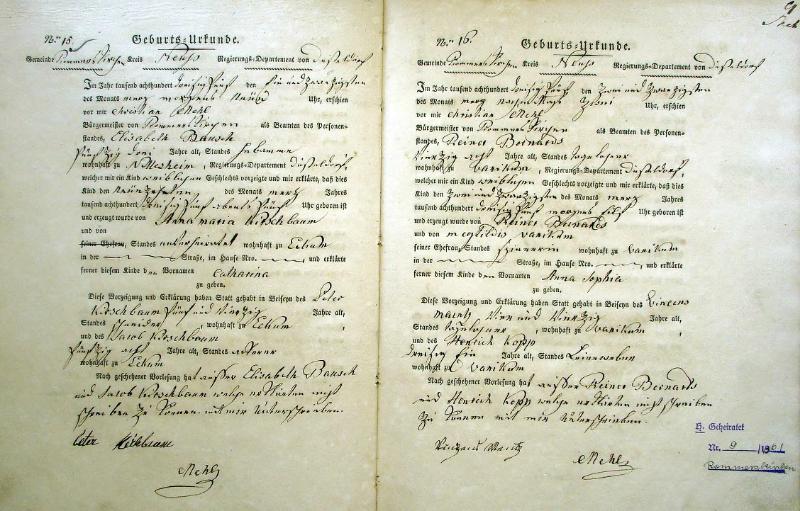 Nro 15.
Geburts=Urkunde.
Gemeinde Rommerskirchen Kreis Neuss Regierungs=Departement von Düsseldorf
Im Jahr tausend achthundert dreißig fünf den ein und zwanzigsten
des Monats merz morgens neun Uhr, erschien
vor mir Christian Mehl
Bürgermeister von Rommerskirchen als Beamten des Personen-
standes, Elisabeth Bausch
fünfzig drei Jahre alt, Standes Hebamme
wohnhaft zu Nettesheim, Regierungs=Departement Düsseldorf,
welcher mir ein Kind weiblichen Geschlechts vorzeigte und mir erklärte, daß dies
Kind den neunzehnten des Monats merz Jahres
tausend achthundert dreißig fünf abends fünf Uhr geboren ist
und erzeugt wurde von Anna maria Kirschbaum
und von
seiner Ehefrau, Standes wohnhaft zu Eckum
in der Straße, im Hause Nro. und erklärte
ferner diesem Kinde den Vornamen Catharina
zu geben.
Diese Vorzeigung und Erklärung haben Statt gehabt in Beiseyn des Peter
Kirschbaum fünf und vierzig Jahre alt,
Standes Schneider, wohnhaft zu Eckum,
und des Jacob Kirschbaum
fünfzig acht Jahre alt, Standes Ackerer
wohnhaft zu Eckum
Nach geschehener Vorlesung hat außer Elisabeth Bausch
und Jacob Kirschbaum welche erklärten nicht
schreiben zu können mit mir unterschrieben.
Peter Kirschbaum
CMehl
Nro 16.
Geburts=Urkunde.
Gemeinde Rommerskirchen Kreis Neuss Regierungs=Departement von Düsseldorf
Im Jahr tausend achthundert dreißig fünf den zwei und zwanzigsten
des Monats merz nachmittags zwei Uhr, erschien
vor mir Christian Mehl
Bürgermeister von Rommerskirchen als Beamten des Personen-
standes, Reiner Bernards
vierzig acht Jahre alt, Standes Tagelöhner
wohnhaft zu Varikum, Regierungs=Departement Düsseldorf,
welcher mir ein Kind weiblichen Geschlechts vorzeigte und mir erklärte, daß dies
Kind den zwei und zwanzigsten des Monats merz Jahres
tausend achthundert dreißig fünf morgens elf Uhr geboren ist
und erzeugt wurde von Reiner Bernards
und von Varikum
seiner Ehefrau, Standes Spinnerin wohnhaft zu Varikum
in der Straße, im Hause Nro. und erklärte
ferner diesem Kinde den Vornamen Anna Sophia
zu geben.
Diese Vorzeigung und Erklärung haben Statt gehabt in Beiseyn des Vincens
vier und vierzig Jahre alt,
Standes Tagelöhner, wohnhaft zu Varikum,
und des Henrich Kopp
dreißig ein Jahre alt, Standes Leineweber
wohnhaft zu Varikum
Nach geschehener Vorlesung hat außer Reiner Bernards
und Henrich Kopp welche erklärten nicht schreiben
zu können mit mir unterschrieben.
CMehl
H. Geheiratet
Nr. 9
Rommerskirchen